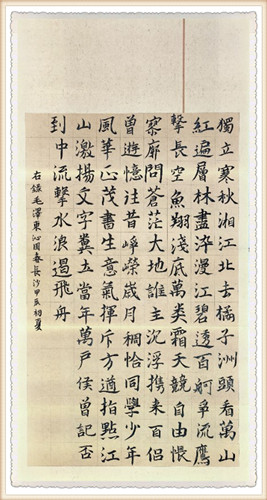 獨立寒秋湘江北去橘子洲頭看萬山
紅遍層林盡染漫江碧透百舸爭流鷹
擊長空魚翔淺底萬類霜天競自由悵
寥廓問蒼茫大地誰主沉浮携來百侶
曾遊憶往昔崢嶸歲月稠恰同學少年
風華正茂書生意氣揮斥方遒指點江
山激揚文字糞土當年萬戶侯曾記否
到中流擊水浪遏飛舟
右錄毛澤東沁園春長沙甲辰初夏